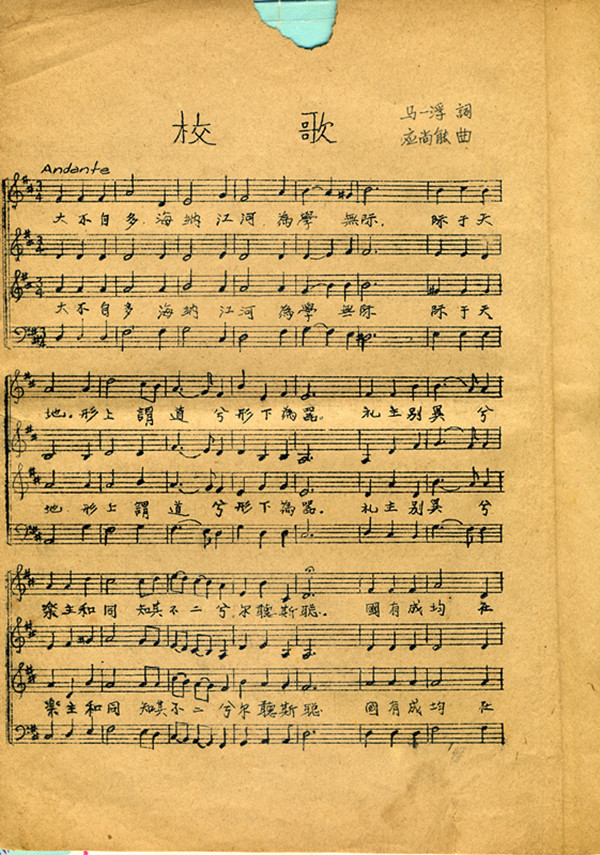 校 歌
马一浮 詞
应尚能 曲
Andante
大不自多 海纳江河 為學 無际. 际于天
大不自多 海纳江河 為學 無际 际于天
地. 形上 謂道 兮形下為器. 礼主别異兮
地 形上 謂道 兮形下為器. 礼主别異兮
樂主和同 知其不二兮尔聽斯聪. 國有成均 在
樂主和同 知其不二兮尔聽斯聪 國有成均 在